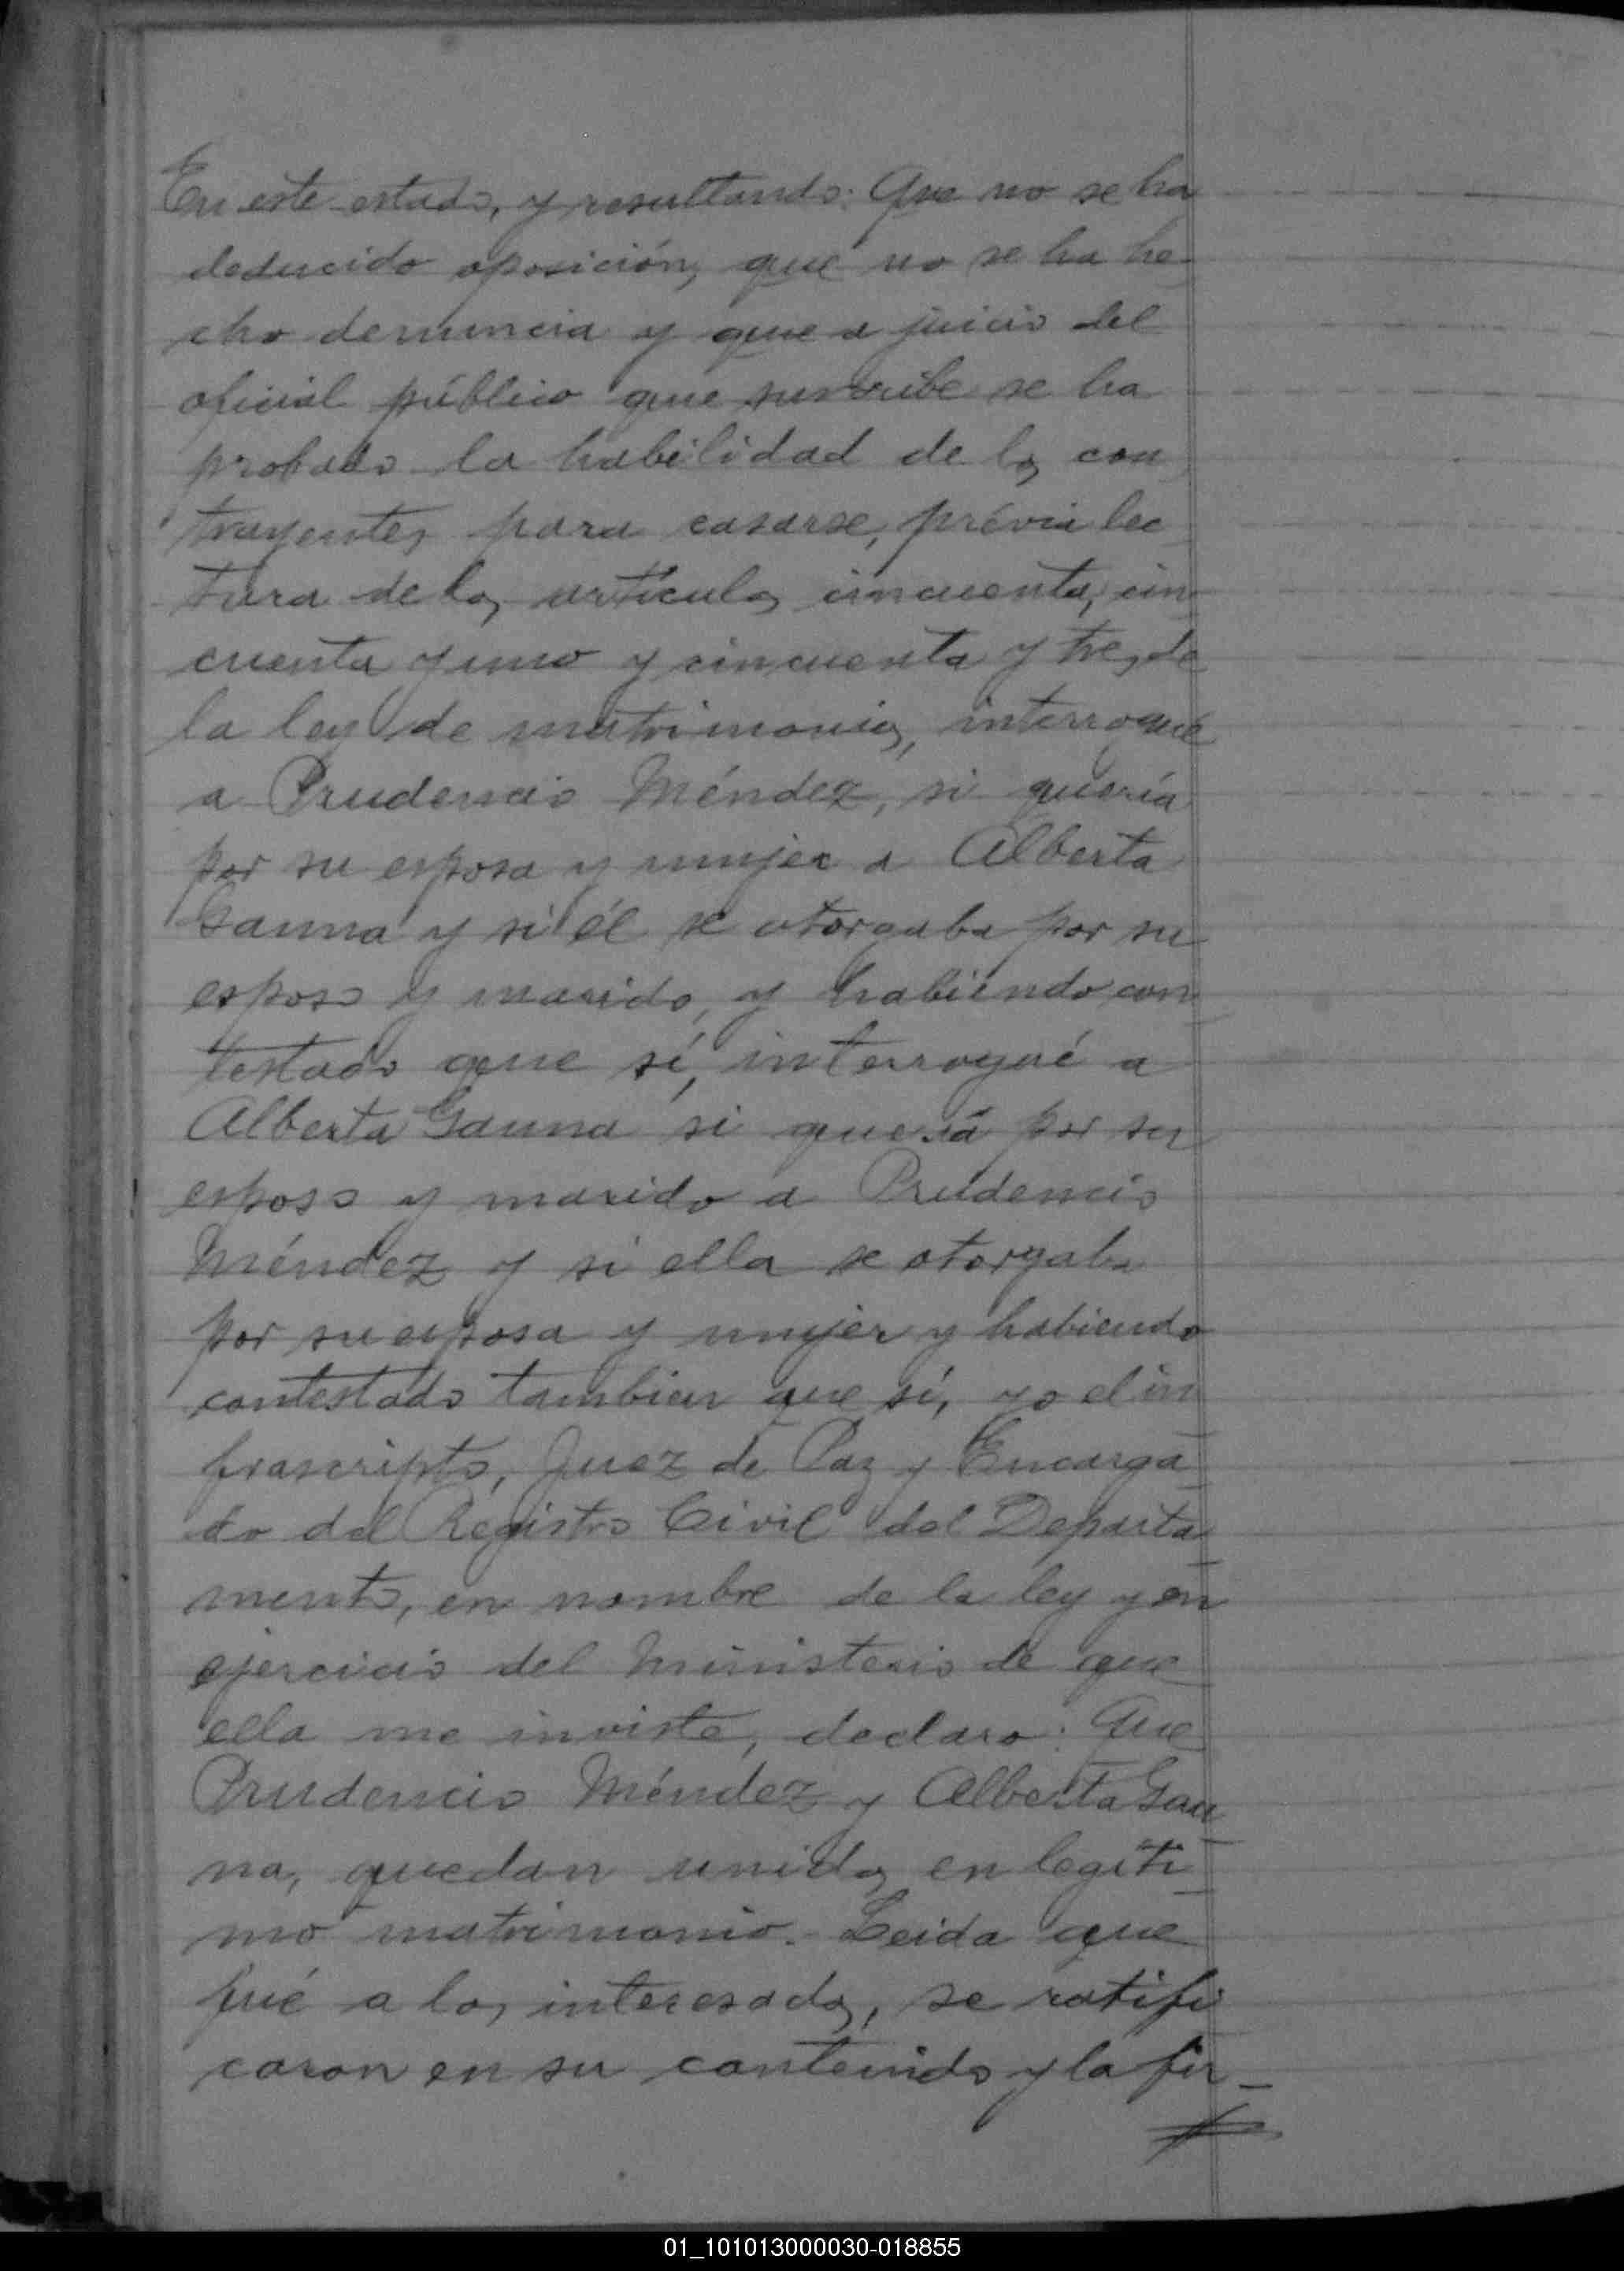 En este estado, y resultando: Que no se ha
deducido oposición, que no se ha he-
cho denuncia y que a juicio del
oficial público que suscribe se ha
probado la habilidad de los con
trayentes para casarse, prévia lec
tura de los artículos cincuenta, cin
cuenta y uno y cincuenta y tres de
la ley de matrimonios, interrogué
a Prudencio Méndez, si quería
por su esposa y mujer a Alberta
Gauna y si él se otorgaba por su
esposo y marido, y habiendo con
testado que sí, interrogué a
Alberta Gauna si quería por su
esposo y marido a Prudencio
Méndez y si ella se otorgaba
por su esposa y mujer y habiendo
contestado tambien que sí, yo el in
frascripto, Juez de Paz y Encarga
do del Registro Civil del Departa
mento, en nombre de la ley y en
ejercicio del Ministerio de que
ella me inviste, declaro: Que
Prudencio Méndez y Alberta Gau
na, quedan unidos en legíti
mo matrimonio. Leida que
fué a los interesados, se ratifi
caron en su contenido y la fir-
01_101013000030-018855